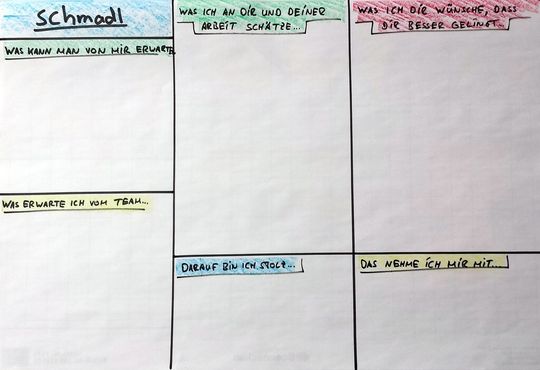 Schmadl
WAS KANN MAN VON MIR ERWARTE
WAS ERWARTE ICH VOM TEAM...
WAS ICH AN DIR UND DEINER
ARBEIT SCHÄTZE...
DARAUF BIN ICH STOLZ...
WAS ICH DIR WÜNSCHE, DASS
DIR BESSER GELINGT...
DAS NEHME ICH MIR MIT...